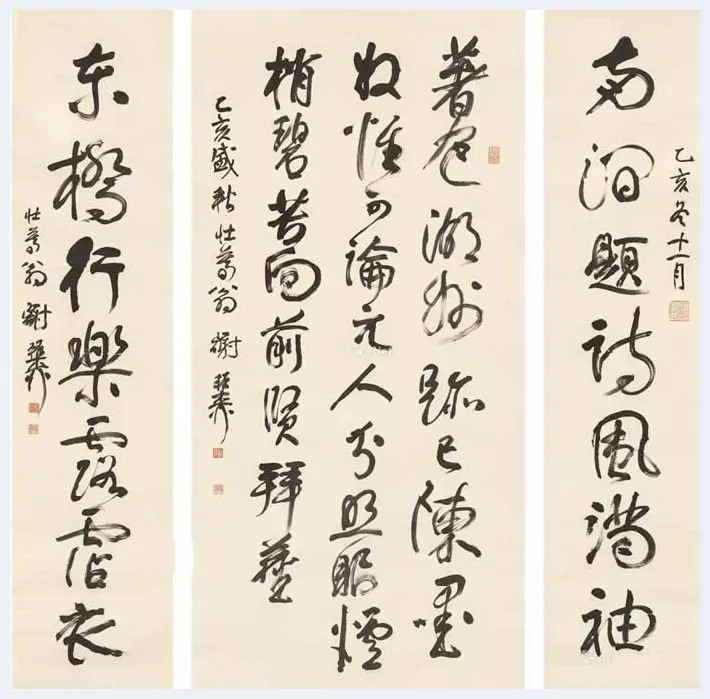 乙亥冬十一月
南澗題詩風滿袖
著色湖州跡已陳墨
奴惟可論元人照眼煙
梢碧苦向前賢拜
乙亥盛秋壯暮翁謝稚柳
東橋行樂露霑衣
壯暮翁謝稚柳